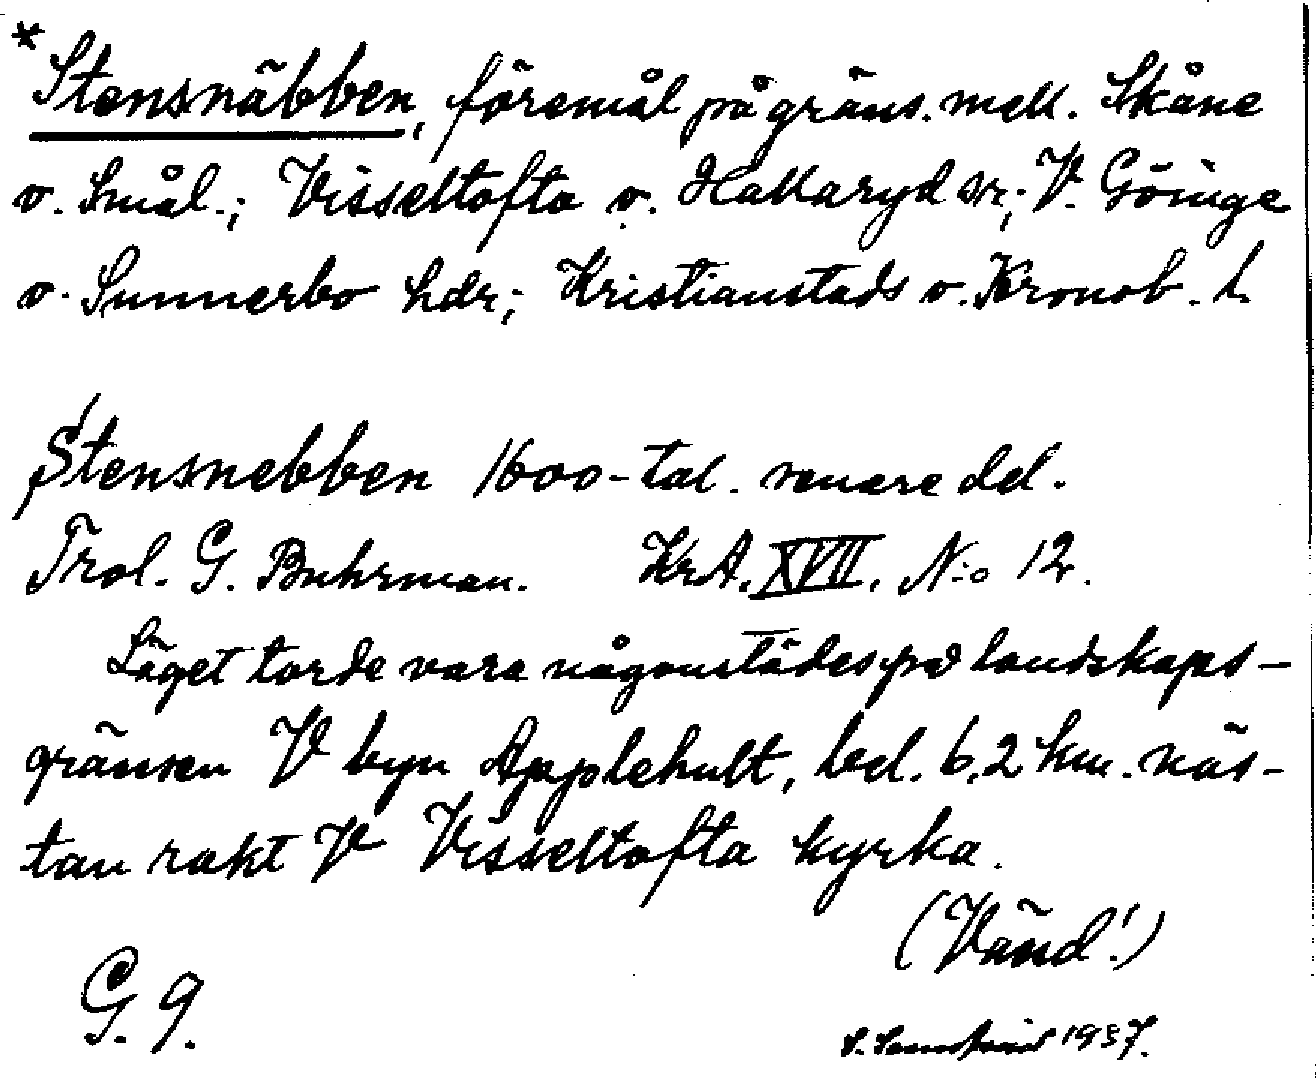 *Stensnäbben, föremål på gräns. mell. Skåne
o. Smål.; Visseltofta o. Hallaryd snr; V. Göinge
o. Sunnerbo hdr; Kristianstads o. Kronob. l.
Stensnebben 1600-tal. senare del.
Trol. G. Buhrman. KrA. XVII. N:o 12.
Läget torde vara någonstädes på landskaps-
gränsen V byn Applehult, bel. 6,2 km. näs-
tan rakt V Visseltofta kyrka.
(Vänd!)
G. 9.
1937.